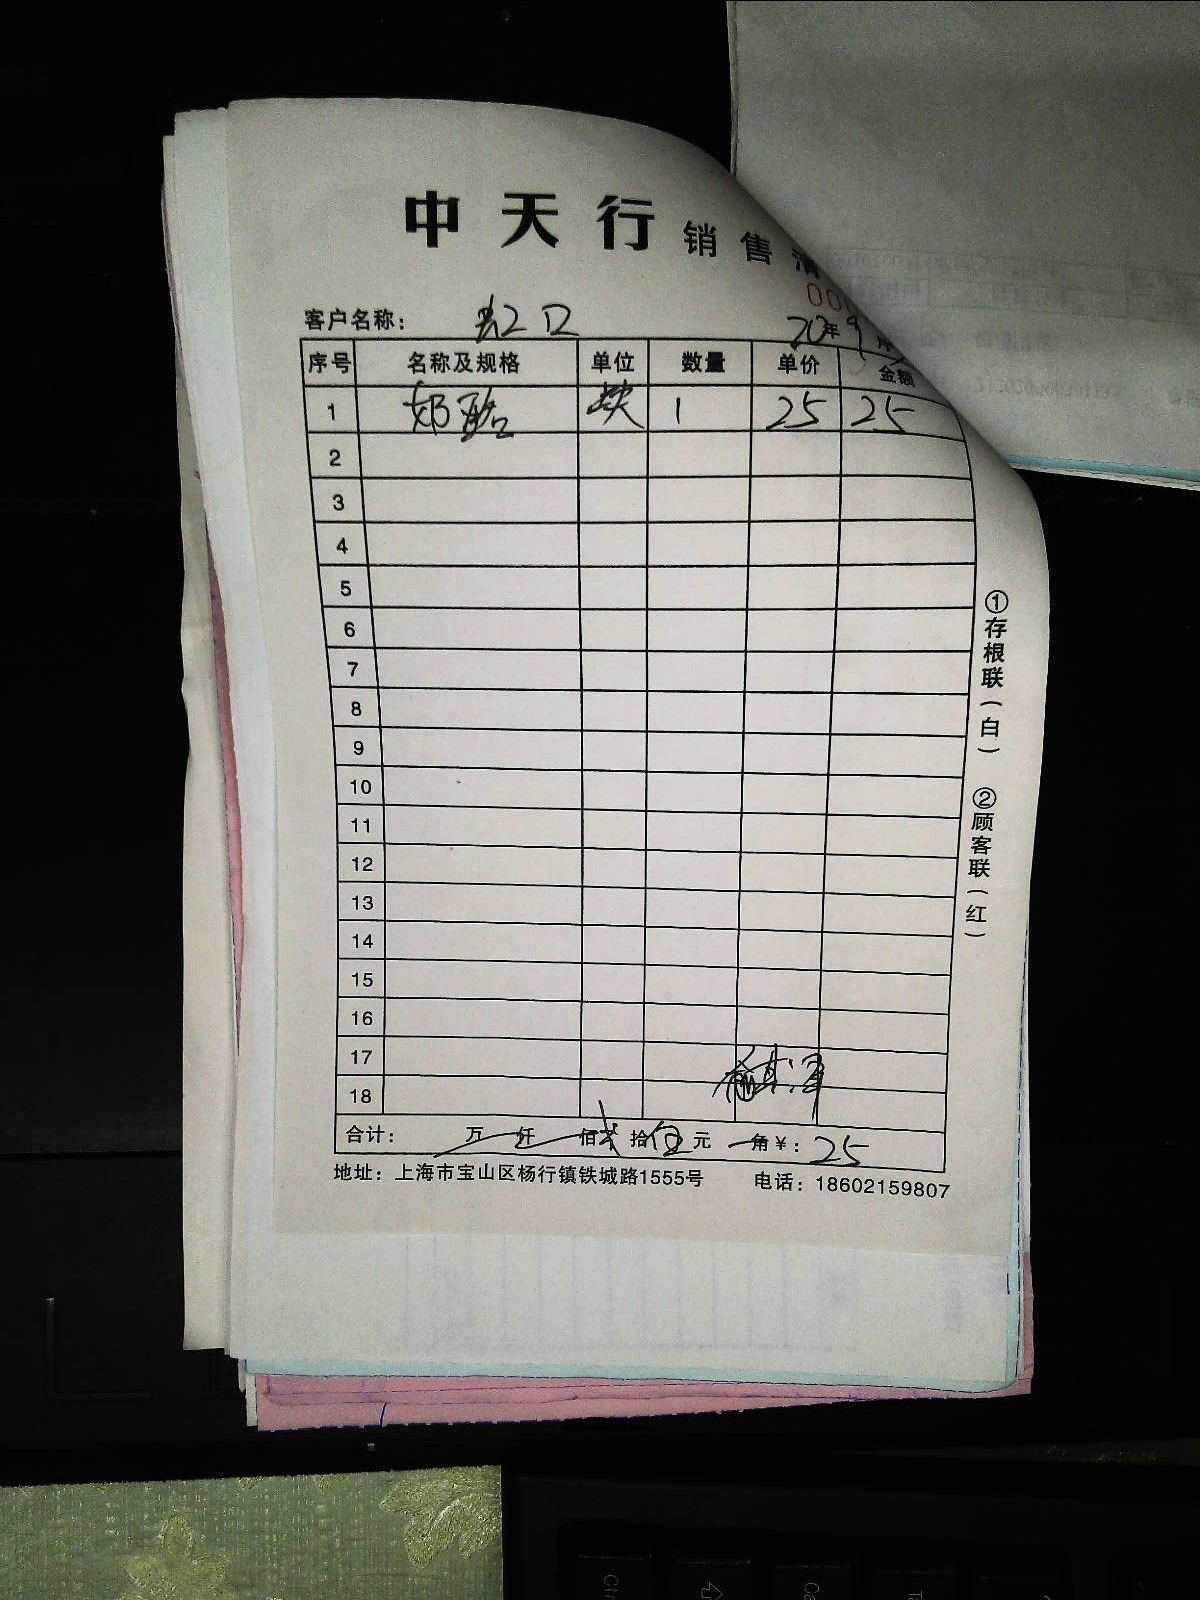 中天行 销售
000
客户名称： 虹口 20年9
序号 名称及规格 单位 数量 单价 金额
1 块 1 25 25
2
3
4
5
6
7
8
9
10
11
12
13
14
15
16
17
18
合计： 万 仟 佰 贰 拾 伍 元 角 ¥： 25
地址：上海市宝山区杨行镇铁城路1555号 电话：18602159807
①存根联（白） ②顾客联（红）